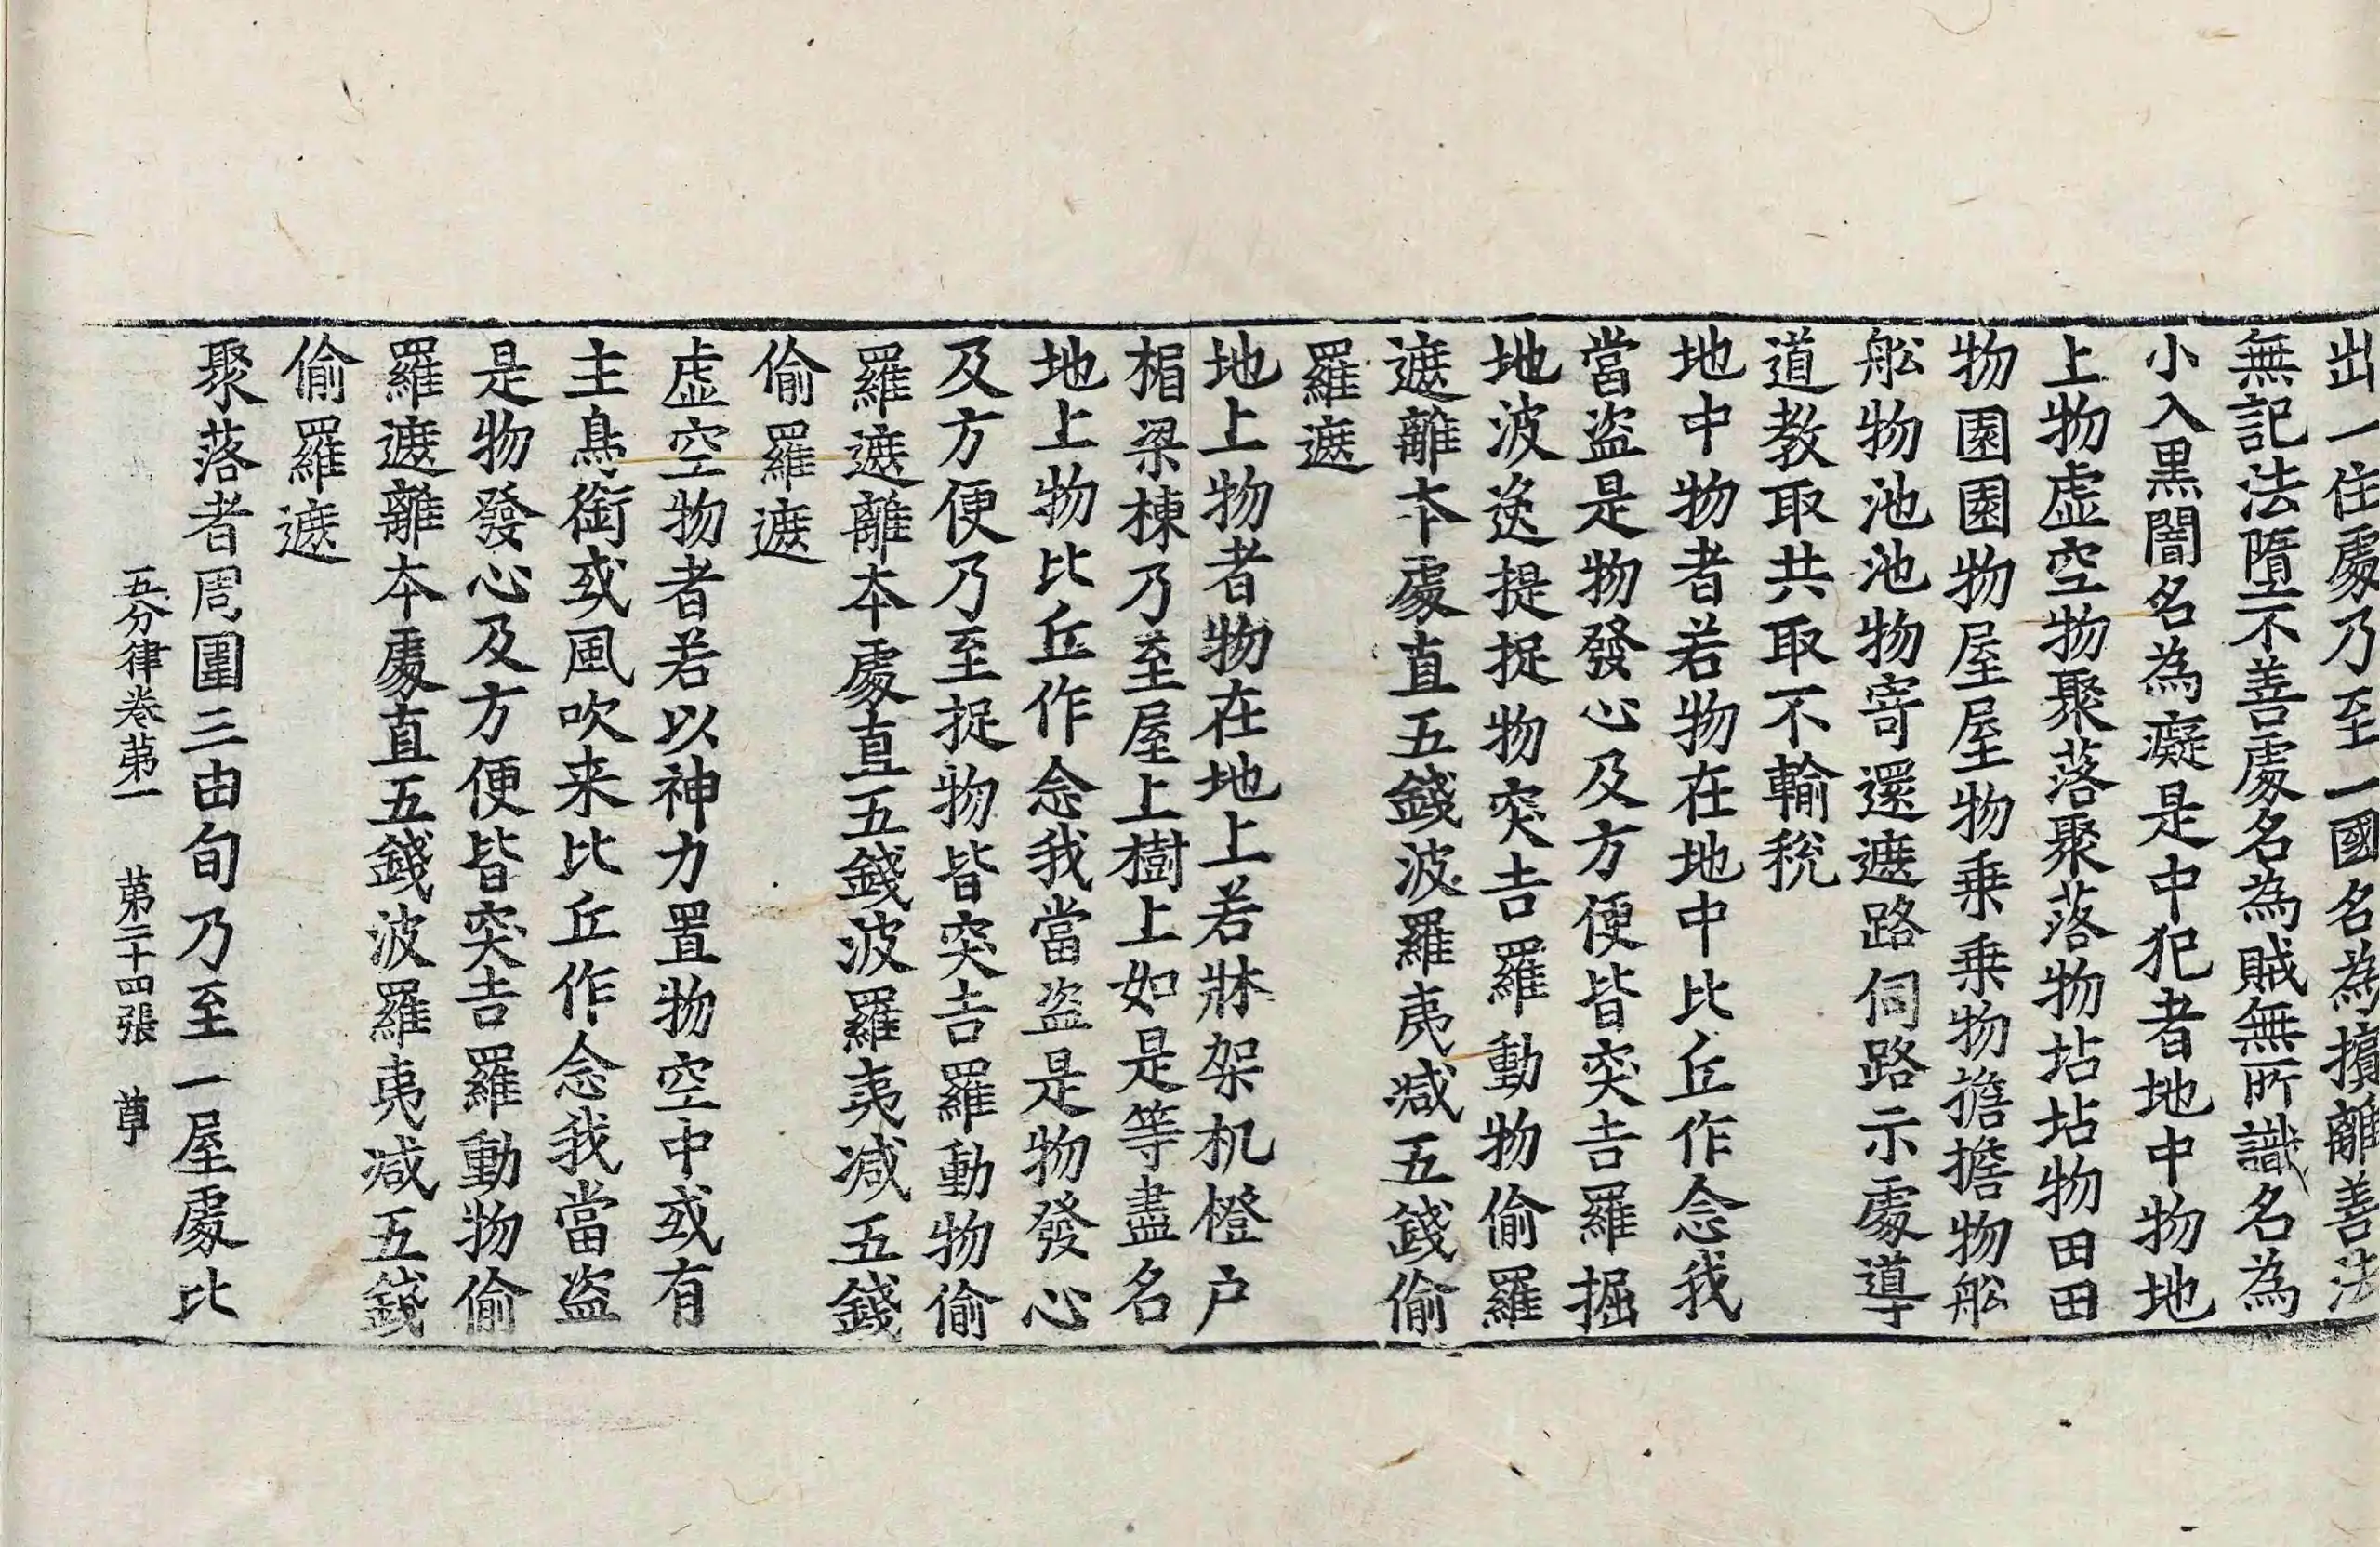 出一住處乃至一國名為擯離善法
無記法墮不善處名為賊無所識名為
小入黒闇名為癡是中犯者地中物地
上物虛空物聚落聚落物坫坫物田田
物園園物屋屋物乗乗物擔擔物舩
舩物池池物寄還遮路伺路示處導
道教取共取不輸稅
地中物者若物在地中比丘作念我
當盗是物發心及方便皆突吉羅掘
地波逸提捉物突吉羅動物偷羅
遮離本處直五錢波羅夷減五錢偷
羅遮
地上物者物在地上若牀架机橙户
梠梁棟乃至屋上樹上如是等盡名
地上物比丘作念我當盗是物發心
及方便乃至捉物皆突吉羅動物偷
羅遮離本處直五錢波羅夷減五錢
偷羅遮
虛空物者若以神力置物空中或有
主鳥銜或風吹来比丘作念我當盗
是物發心及方便皆突吉羅動物偷
羅遮離本處直五錢波羅夷減五錢
偷羅遮
聚落者周圍三由旬乃至一屋處比
五分律卷苐一 苐二十四張 尊